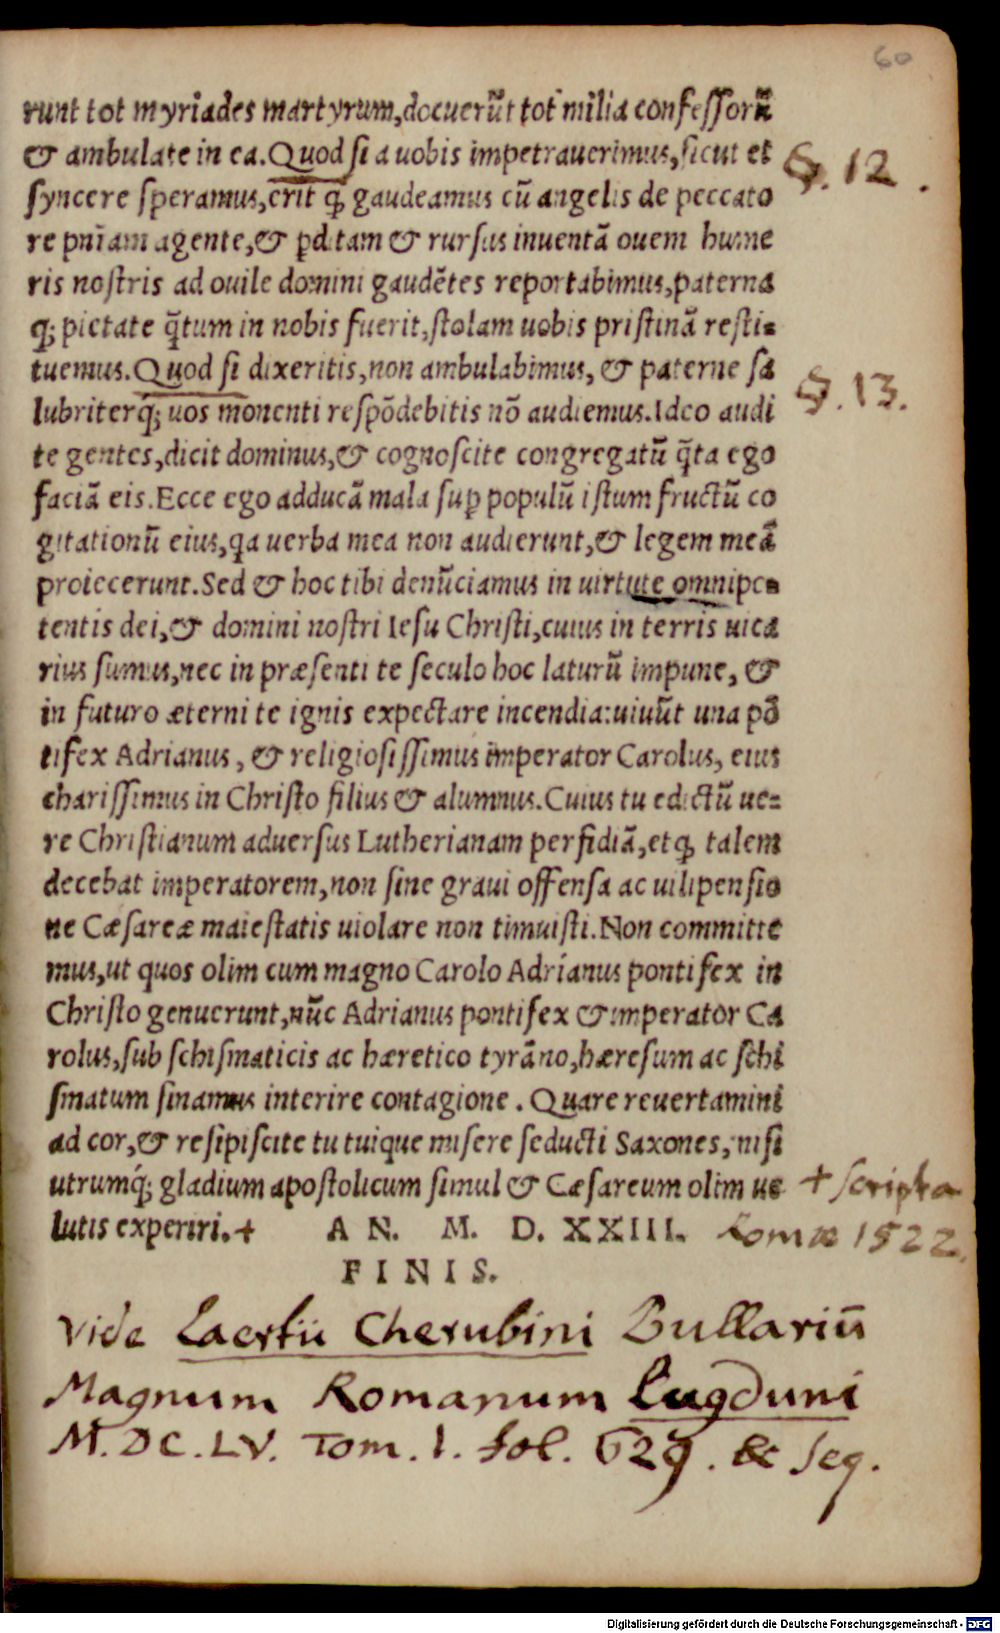 60
runt tot myriades martyrum,docuerũt tot milia confessorũ
& ambulate in ea.Quod si a uobis impetrauerimus,sicut et §. 12.
syncere speramus,erit q̃ gaudeamus cũ angelis de peccato
re pñiam agente,& ꝑditam & rursus inuentã ouem hume
ris nostris ad ouile domini gaudẽtes reportabimus,paterna
q; pietate q̃tum in nobis fuerit,stolam uobis pristinã resti-
tuemus.Quod si dixeritis,non ambulabimus, & paterne sa
lubriterq́; uos monenti respõdebitis nõ audiemus.Ideo audi §. 13.
te gentes,dicit dominus,& cognoscite congregatũ q̃ta ego
faciã eis.Ecce ego adducã mala suꝑ populũ istum fructũ co
gitationũ eius,qa uerba mea non audierunt,& legem meã
proiecerunt.Sed & hoc tibi denũciamus in uirtute omnipo-
tentis dei,& domini nostri Iesu Christi,cuius in terris uica
rius sumus,nec in præsenti te seculo hoc laturũ impune, &
in futuro æterni te ignis expectare incendia:uiuũt una põ
tifex Adrianus, & religiosissimus imperator Carolus, eius
charissimus in Christo filius & alumnus.Cuius tu edictũ ue-
re Christianum aduersus Lutherianam perfidiã,etq̃ talem
decebat imperatorem,non sine graui offensa ac uilipensio
ne Cæsareæ maiestatis uiolare non timuisti.Non committe
mus,ut quos olim cum magno Carolo Adrianus pontifex in
Christo genuerunt,nũc Adrianus pontifex & imperator Ca
rolus,sub schismaticis ac hæretico tyrãno,hæresum ac schi
smatum sinamus interire contagione . Quare reuertamini
ad cor,& resipiscite tu tuique misere seducti Saxones, nisi
utrumq́; gladium apostolicum simul & Cæsareum olim ue + scripta
lutis experiri.+ A N. M. D. XXIII. Romæ 1522.
F I N I S.
Vide Laertii Cherubini Bullariũ
Magnum Romanum Lugduni
M.DC.LV. Tom. 1. fol. 629. & seq.
Digitalisierung gefördert durch die Deutsche Forschungsgemeinschaft - DFG